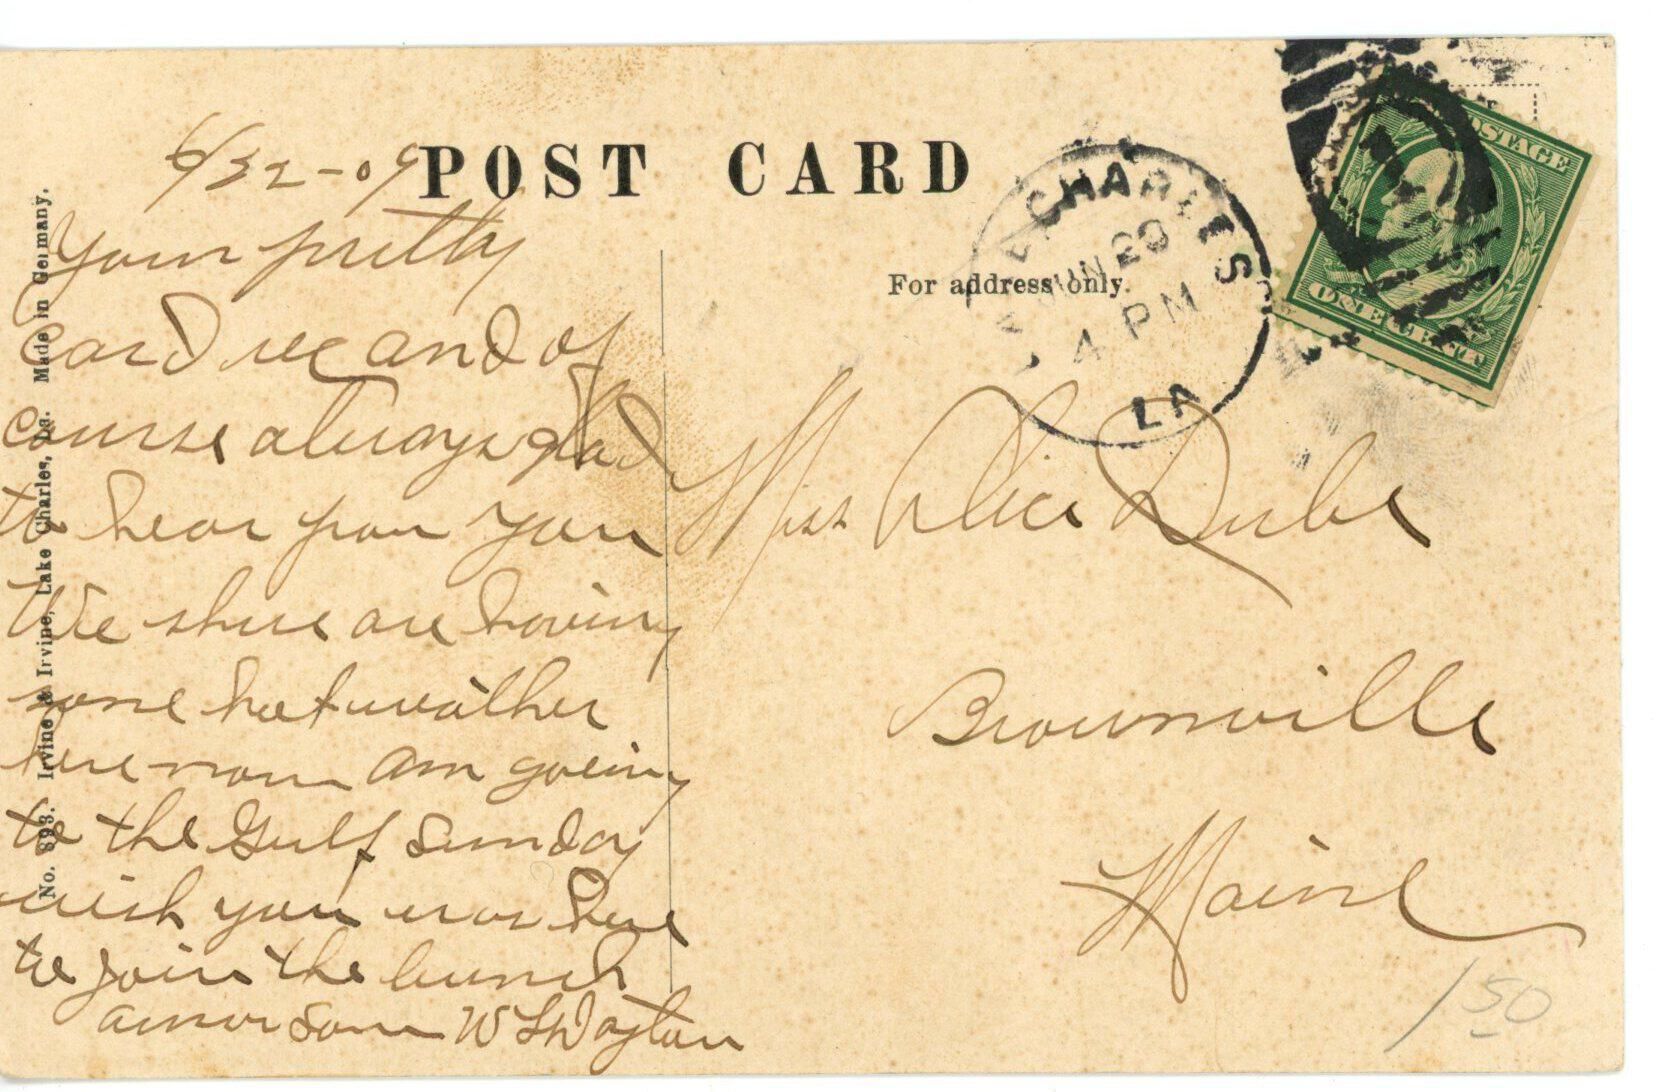 POST CARD
For address only.
No. 893. Irvine & Irvine, Lake Charles, La. Made in Germany.
LAKE CHARLES
JUN 29
4 PM
LA
POSTAGE
ONE CENT
Your pretty
card rec and of
course always glad
to hear from you
We shure are having
some hot weather
here now am going
to the Gulf Sunday
wish you was here
to join the bunch
answer soon W L Dayton
Miss Alice Dube
Brownville
Maine
1 50